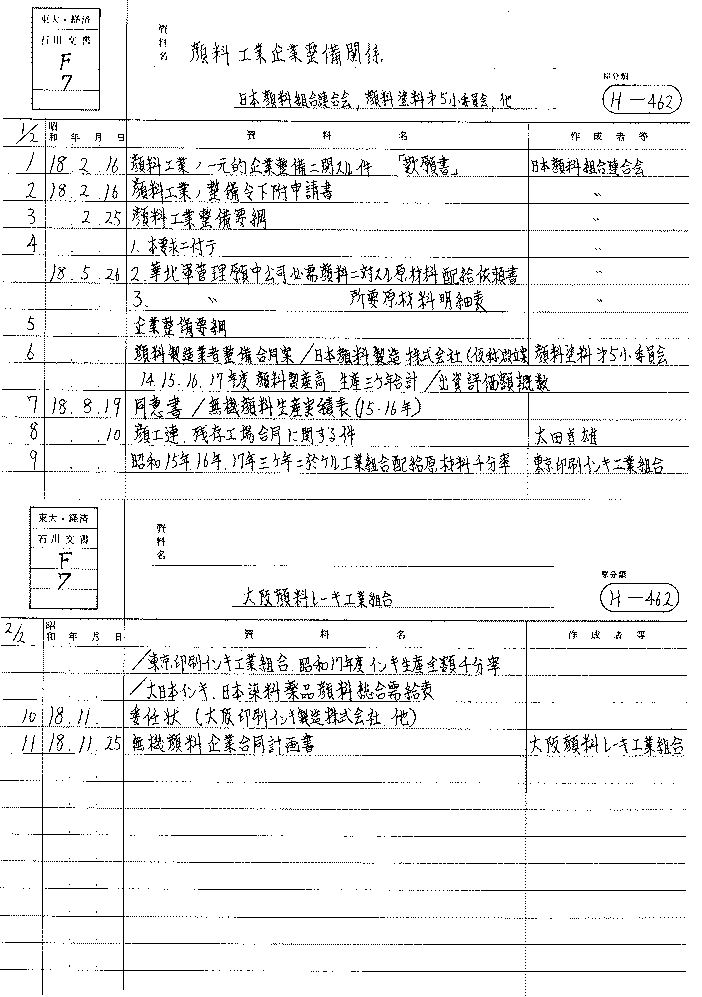 東大・経済
石川文書
F
7
資料名
顔料工業企業整備関係
日本顔料組合連合会, 顔料塗料第5小委員会, 他
原分類
H-462
1/2
昭和 年 月 日 資 料 名 作成者等
1 18. 2. 16 顔料工業ノ一元的企業整備ニ関スル件 「歎願書」 日本顔料組合連合会
2 18. 2. 16 顔料工業ノ整備令下附申請書 〃
3 2. 25 顔料工業整備要綱 〃
4 1. 本要求ニ付テ 〃
18. 5. 26 2. 華北軍管理 中公司必需顔料ニ対スル原材料配給依頼書 〃
3. 〃 所要原材料明細表 〃
5 企業整備要綱
6 顔料製造業者整備合同案 /日本顔料製造株式会社(仮称) 顔料塗料第5小委員会
14. 15. 16. 17年度顔料製産高 生産三ケ年合計 /出資評価額概数
7 18. 8. 19 同意書 /無機顔料生産実績表(15-16年)
8 10 顔工連. 残存工場合同に関する件 太田 雄
9 昭和15年. 16年. 17年三ケ年ニ於ケル工業組合配給原材料千分率 東京印刷インキ工業組合
東大・経済
石川文書
F
7
資料名
大阪顔料レーキ工業組合
原分類
H-462
2/2
昭和 年 月 日 資 料 名 作成者等
/東京印刷インキ工業組合. 昭和17年度インキ生産全額千分率
/大日本インキ. 日本染料薬品顔料総合需給表
10 18. 11. 委任状 (大阪印刷インキ製造株式会社 他)
11 18. 11. 25 無機顔料企業合同計画書 大阪顔料レーキ工業組合